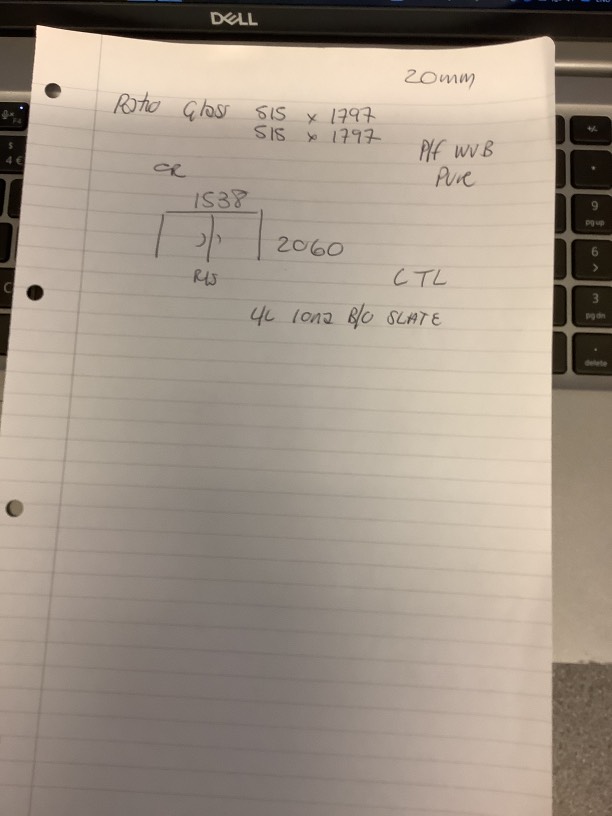 DELL
20mm
Patio Glass 515 x 1797
515 x 1797
P/F WVB
Pure
OR
1538
2060
R/S
CTL
4L 10n2 B/O SLATE
9
pg up
6
>
3
pg dn
.
delete
+/-
$
4 €
F4
C